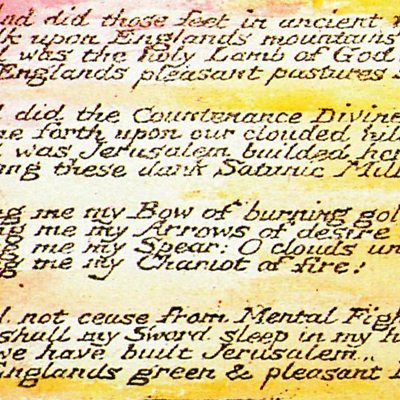 And did those feet in ancient
lk upon Englands mountains
was the holy Lamb of God
Englands pleasant pastures
did the Countenance Divine
ne forth upon our clouded hil
was Jerusalem builded he
ng these dark Satanic Mill
g me my Bow of burning gol
ng me my Arrows of desire
g me my Spear: O clouds un
g me my Chariot of fire!
not cease from Mental Figh
shall my Sword sleep in my h
we have built Jerusalem
Englands green & pleasant L